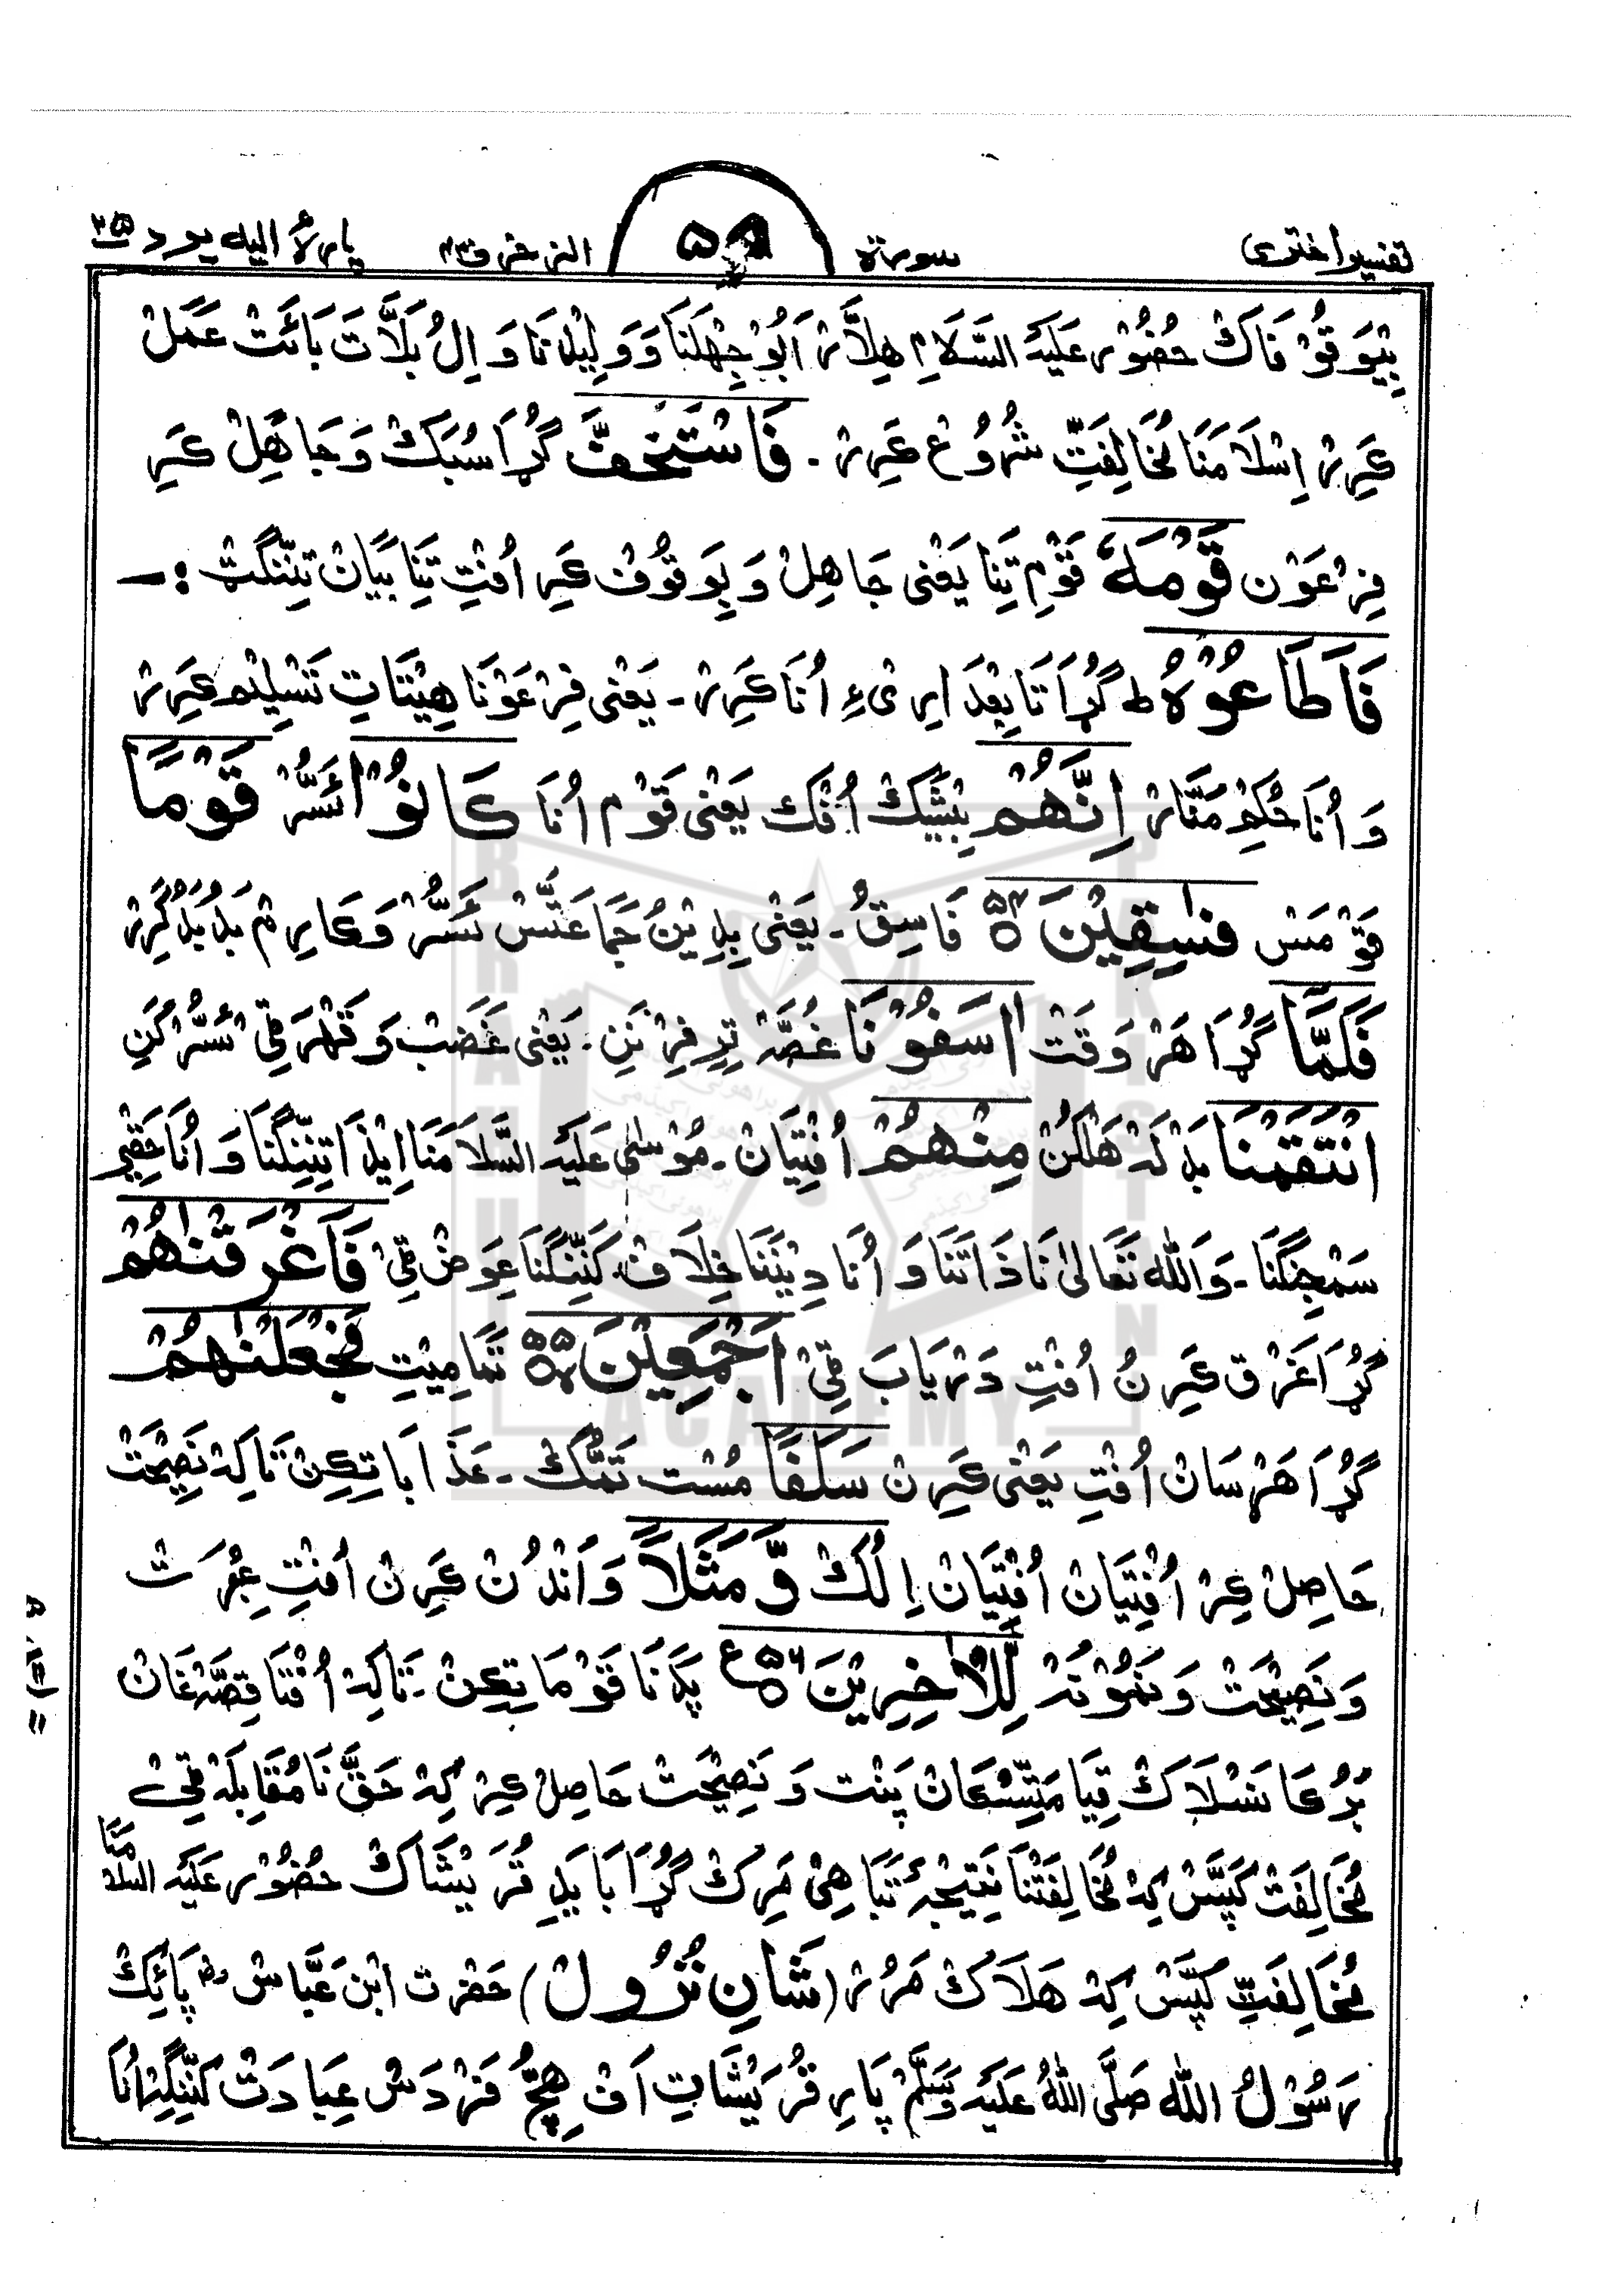 تفسیر اختری سورۃ ۵۹ الزخرف ۴۳ پارۂ الیہ یرد ۲۵
بِیْوَقُوْفَاکْ حُضُوْر عَلَیْہِ السَّلَامِ ہِلَّار اَبُوْ جِہْلَنَا وَ وَلِیْدِنَا وَ اِلُ بَلَّاتَ بَائَتْ عَمَلْ
کَرِرْ اِسْلَامَنَا مُخَالِفَتِّ شُرُوْع کَرِرْ ۔ فَاسْتَخَفَّ گُڑَا سُبَکْ وَ جَاھِلْ کَرِ
فِرْعَوْن قَوْمَہٗ قَوْمِ تِنَا یَعْنٰی جَاھِلْ وَ بِوَقُوْف کَرِ اُفْتِ تِنَا بَیَانْ تِنِّنگَٹْ :۔
فَاَطَاعُوْہُ ط گُڑَا تَابِعْدَارِیءِ اُنَا کَرِرْ ۔ یَعْنٰی فِرْعَوْنَا ھِیْتَاتِ تَسْلِیْم کَرِرْ
وَ اُنَا حُکْمِ مَنَّارْ اِنَّھُمْ بِیْشَکْ اُفْک یَعْنٰی قَوْم اُنَا کَانُوْا ئَسُّرْ قَوْمًا
قَوْمَسْ فٰسِقِیْنَ ۵۴ فَاسِقُ ۔ یَعْنٰی بِدِیْنُ جَمَاعَتَسْ ئَسُّرْ وَ کَارِم بَدُ بَدُ کُرِرْ
فَلَمَّا گُڑَا ھَرْ وَقَتْ اٰسَفُوْنَا غُصَّہْ تِرِفِرْ نَنِ ۔ یَعْنٰی غَضَبْ وَ قَہْرَ قِیْ ئَسُّرْ کَنِ
انْتَقَمْنَا بَدْلَہْ ھَلْکُنْ مِنْھُمْ اُفْتِیَانْ ۔ مُوْسٰی عَلَیْہِ السَّلَامَنَا اِیْذَا تِنِنِّگنَا وَ اُنَا حَقِیْر
سَمْجِنگنَا ۔ وَ اللہ تَعَالٰی نَا ذَاتَنَا وَ اُنَا دِیْنَنَا خِلَاف کَنِنِّگنَا عِوَضْ قِیْ فَاَغْرَقْنٰھُمْ
گُڑَا غَرْق کَرِنُ اُفْتِ دَرْیَابَ قِیْ اَجْمَعِیْنَ ۵۵ تَمَامِیْتِ فَجَعَلْنٰھُمْ
گُڑَا ھَرْسَانْ اُفْتِ یَعْنٰی کَرِنْ سَلَفًا مُسْت تَمُّکْ ۔ عَذَابَاتِکِنْ تَاکِہْ نَصِیْحَتْ
حَاصِلْ کِرْ اُفْتِیَانْ اُفْتِیَانْ اِلُکْ وَّ مَثَلًا وَ اَنْدُنْ کَرِنْ اُفْتِ عِبْرَتْ
وَ نَصِیْحَتْ وَ نَمُوْنَہْ لِّلْاٰخِرِیْنَ ۵۶ ع پَدَنَا قَوْمَاتِکِنْ ۔ تَاکِہْ اُفْتَا قِصَّہْ غَانْ
بَرُکَا نَسْلَاکْ قِیَامَتِسْکَانْ پَنْت وَ نَصِیْحَتْ حَاصِلْ کِرْ کِہْ حَقَّ نَا مُقَابِلَہْ قِیْ
مُخَالِفَتْ کَپَّسْ کِہْ مُخَالِفَتْنَا نَتِیْجَہ تَبَاھِیْ مَرِکْ گُڑَا بَایَدِ قُرَیْشَاکْ حُضُوْر عَلَیْہِ السلام منا
مُخَالِفَتِّ کَپَّسْ کِہْ ھَلَاکْ مَرُرْ (شَانِ نُزُوْل) حَضْرَت اِبْن عَبَّاسْ رض پَائِکْ
رَسُوْلُ اللہ صَلَّی اللہُ عَلَیْہِ وَسَلَّمْ پَارِ قُرَیْشَاتِ اَفْ ھِچُّ فَرْدَسْ عِبَادَتْ کَنِّنِگِرْ اُنَا
BRAHUI ACADEMY PAKISTAN